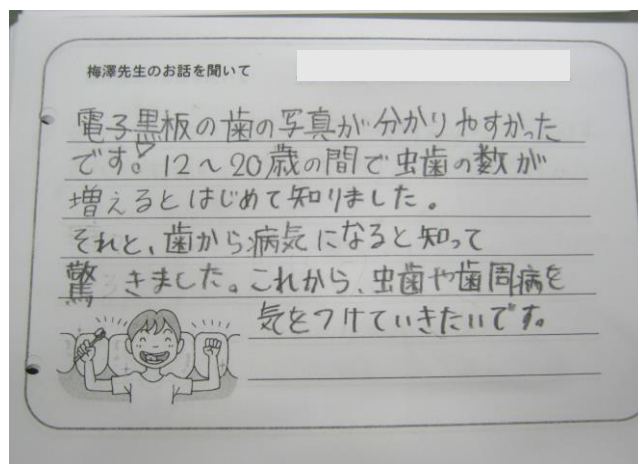 梅澤先生のお話を聞いて
電子黒板の歯の写真が分かりやすかった
です。12～20歳の間で虫歯の数が
増えるとはじめて知りました。
それと、歯から病気になると知って
驚きました。これから、虫歯や歯周病を
気をつけていきたいです。